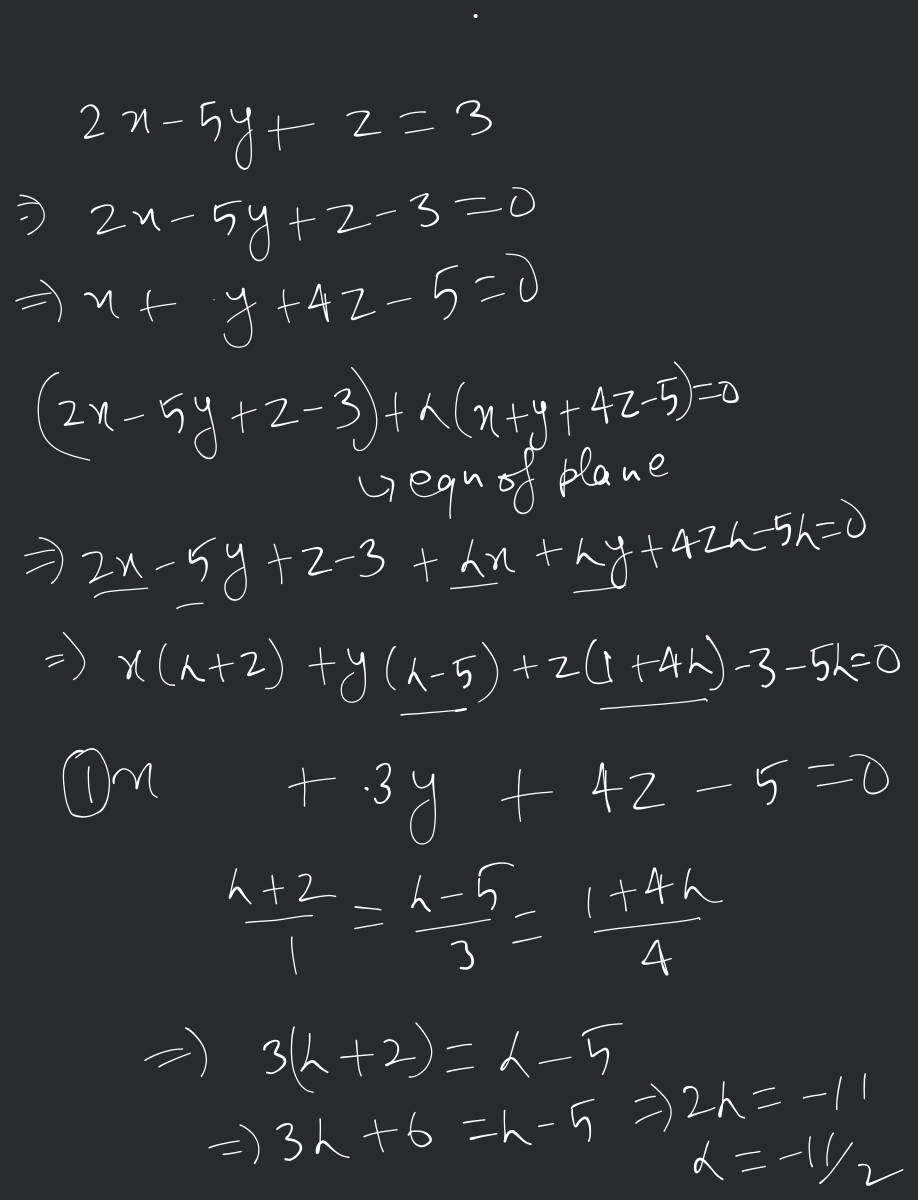 2x - 5y + z = 3
⇒ 2x - 5y + z - 3 = 0
⇒ x + y + 4z - 5 = 0
(2x - 5y + z - 3) + λ(x + y + 4z - 5) = 0
↳ eqn of plane
⇒ 2x - 5y + z - 3 + λx + λy + 4zλ - 5λ = 0
⇒ x(λ+2) + y(λ-5) + z(1+4λ) - 3 - 5λ = 0
①x + 3y + 4z - 5 = 0
(λ+2)/1 = (λ-5)/3 = (1+4λ)/4
⇒ 3(λ+2) = λ - 5
⇒ 3λ + 6 = λ - 5 ⇒ 2λ = -11
λ = -11/2